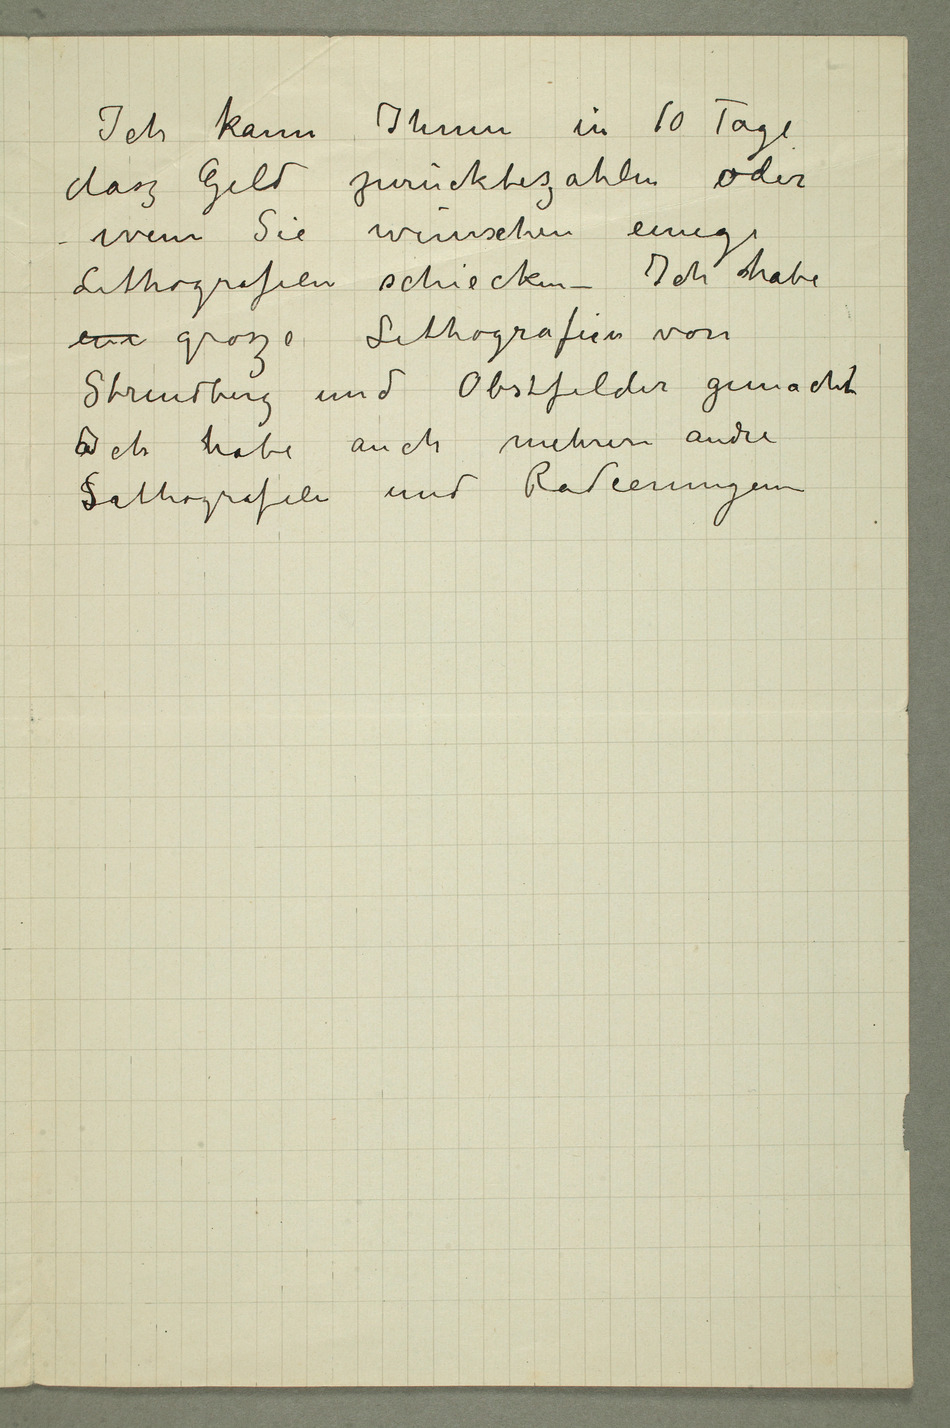 Ich kann Ihnen in 10 Tage
dasz Geld zurückbezahlen oder
– wenn Sie wünschen einige
Lithografien schiecken – Ich habe
eine grosze Lithografien von
Strindberg und Obstfelder gemacht
Ich habe auch mehrere andre
Lithografien und Radeerungen –